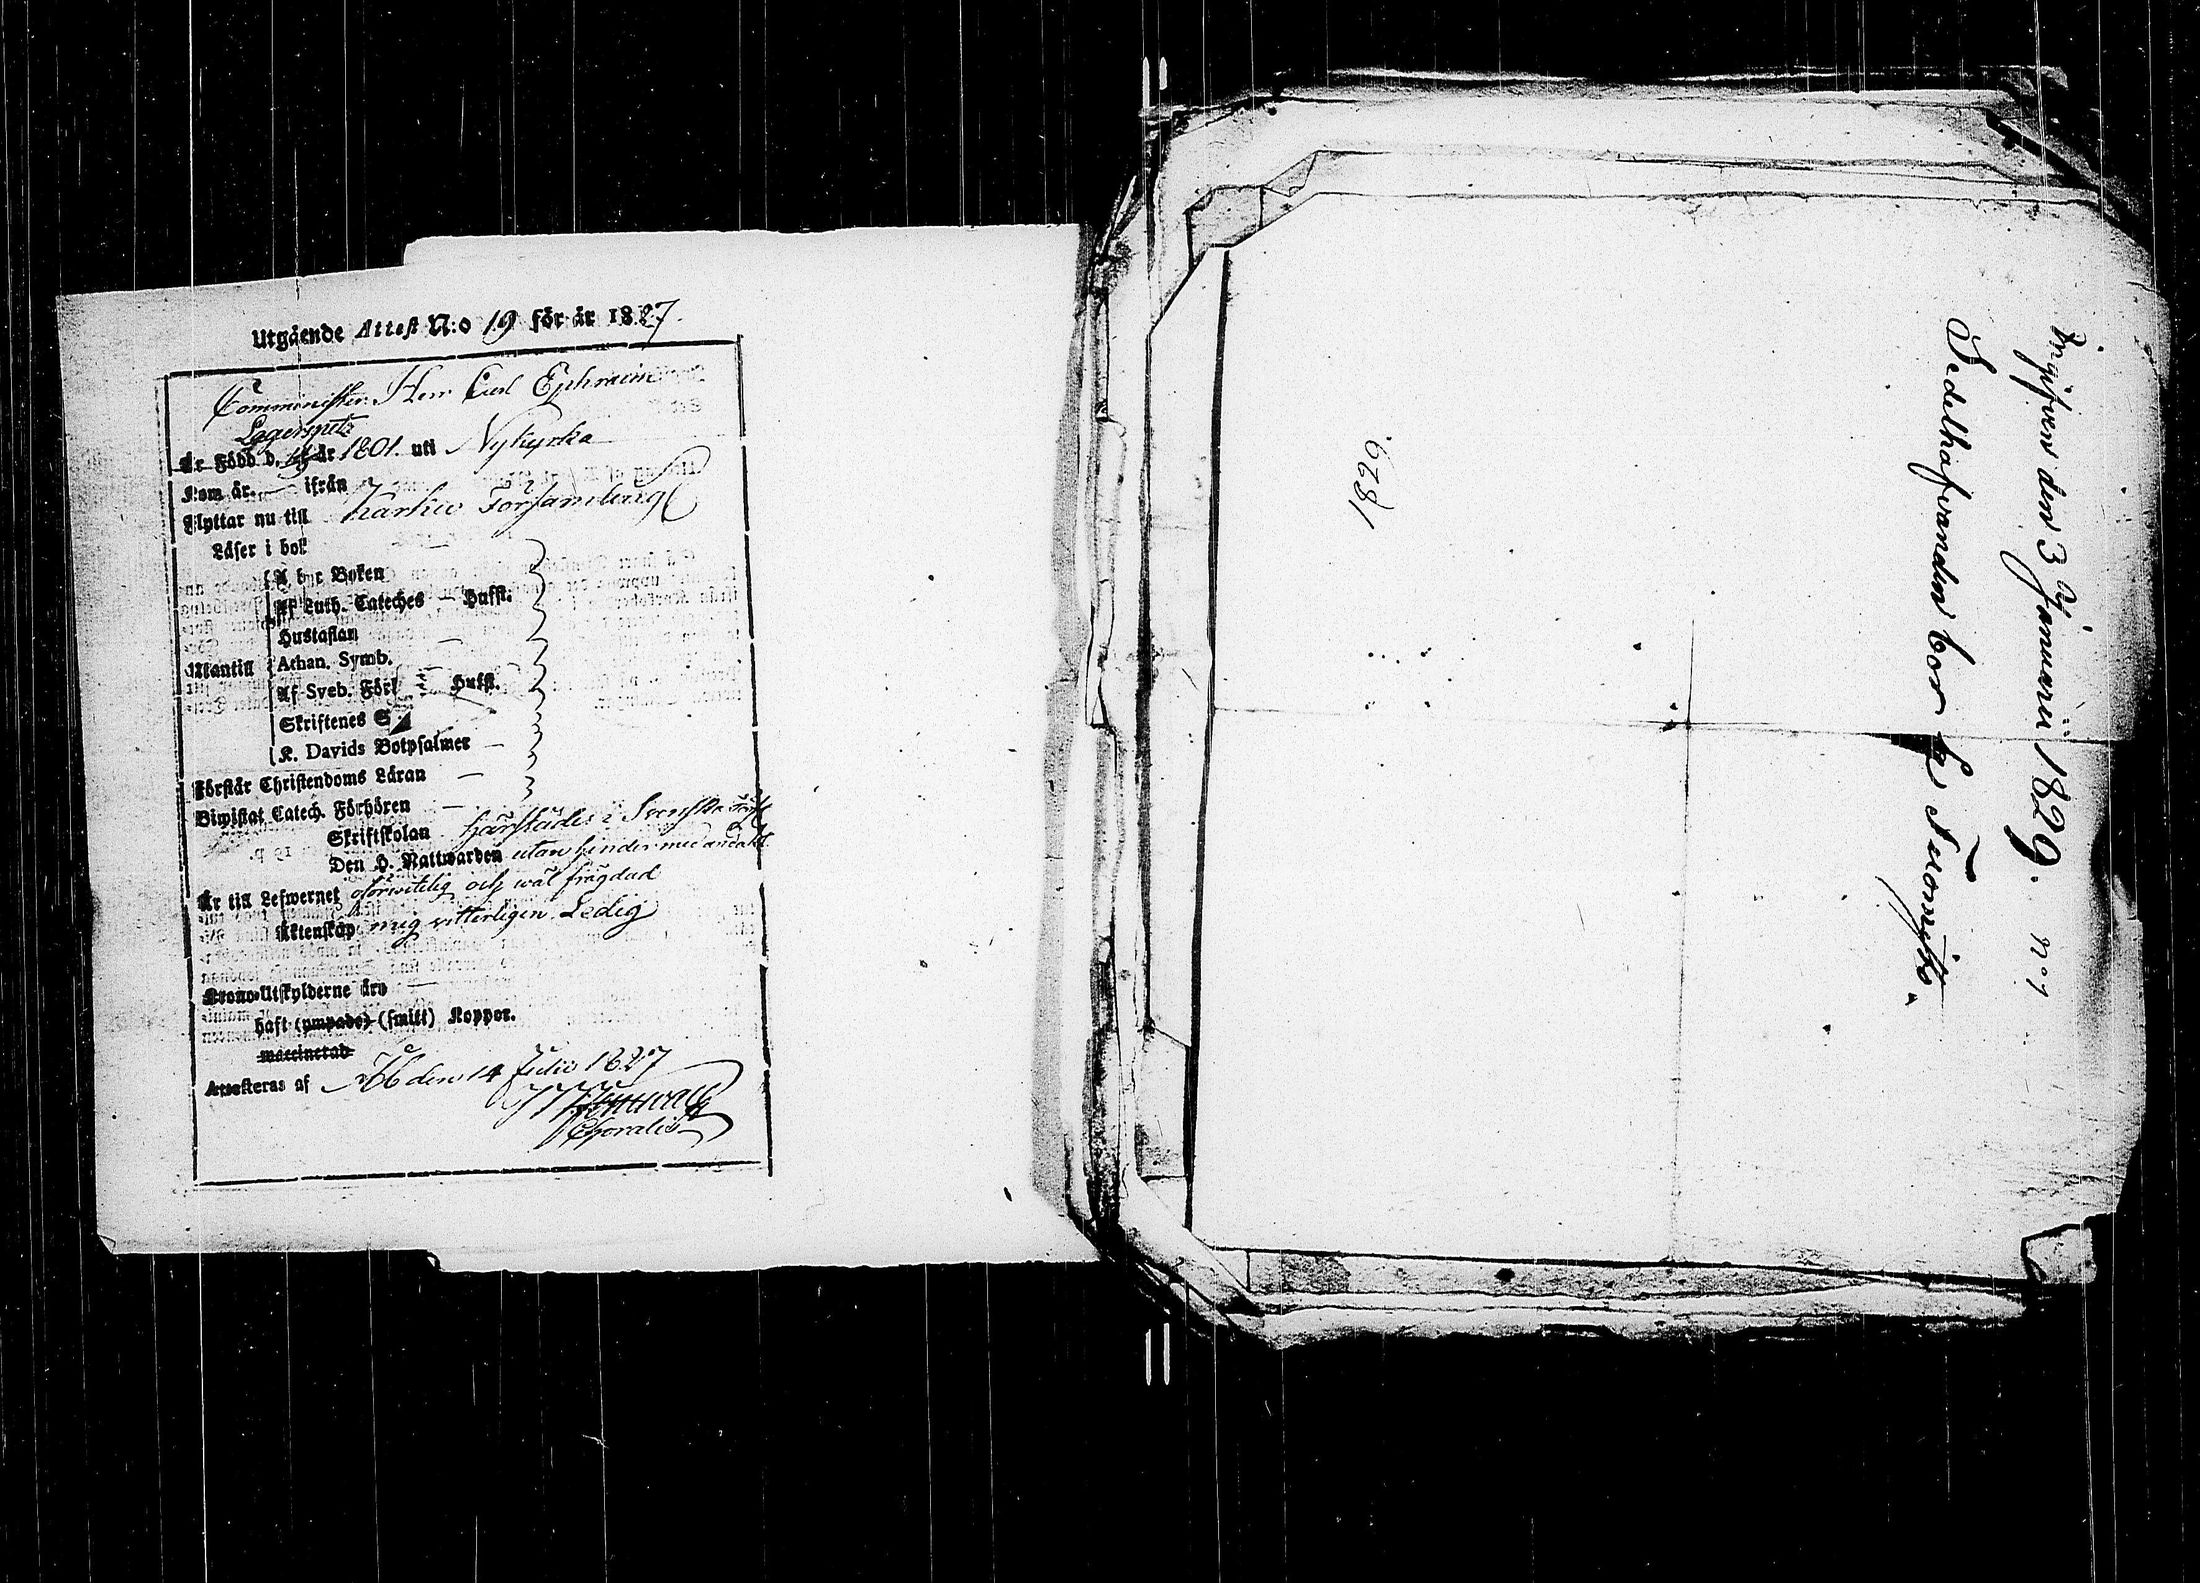 Utgående Attest N:o 19 för år 1827.
Comminister Herr Carl Ephraim
Lagerspetz
Är Född d. år 1801. uti Nykyrka
Kom år — ifrån
Flyttar nu till Karkku Församling
Läser i bok
A, b, c Boken
Af Luth. Cateches — Hufst.
Hustaflan
Utantill Athan. Symb.
Af Sveb. Förkl. Hufst.
Skriftenes S
K. Davids Botpsalmer —
Förstår Christendoms Läran —
Biwistat Catech. Förhören —
Skriftskolan härstädes i Svenska Förs.
Den H. Nattwarden utan hinder med andakt.
Är till Lefwernet oförwitelig och wäl frägdad
Äktenskap mig vitterligen Ledig
Krono-Utskylderne äro —
haft (ympade) (smitt) Koppor.
waccinerad
Attesteras af Åbo den 14 Julii 1827
Choralis
1829.
Ingifven den 3 Januarii 1829. No 1
Sedelhafvanden bor på Tuomisto.